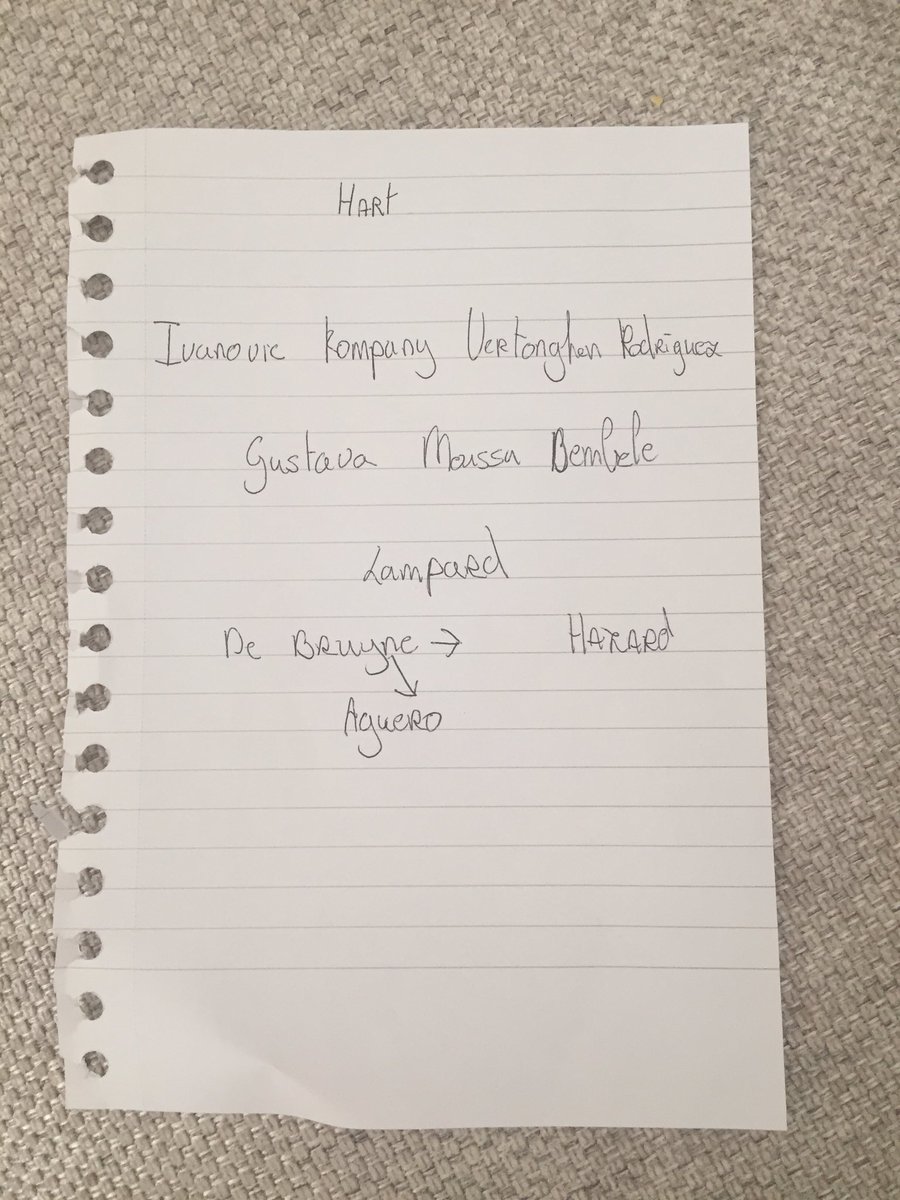 HARt
Ivanovic Kompany Vertonghen Rodriguez
Gustava Moussa Dembele
Lampard
De BRuyne → HAZARd
AgueRO